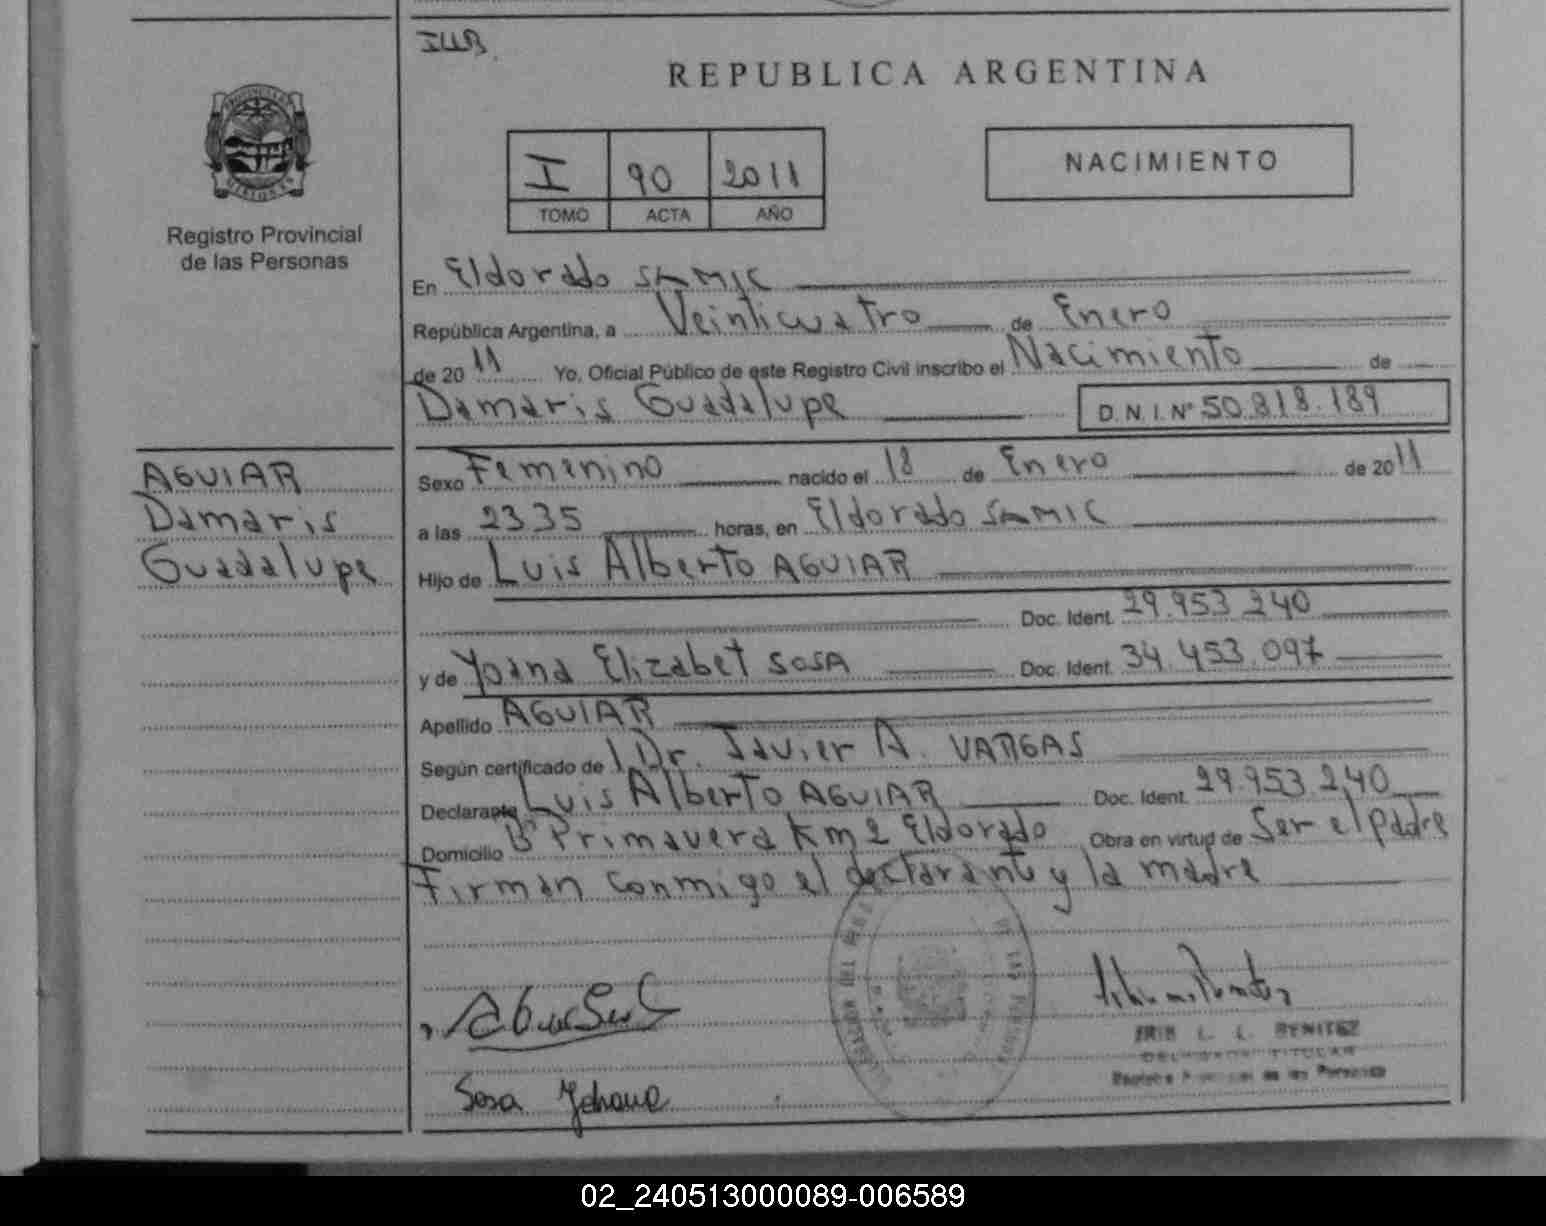 ILLB.
REPUBLICA ARGENTINA
I 90 2011
TOMO ACTA AÑO
NACIMIENTO
Registro Provincial
de las Personas
En Eldorado SAMIC
República Argentina, a Veinticuatro de Enero
de 20 11 Yo, Oficial Público de este Registro Civil inscribo el Nacimiento de
Damaris Guadalupe D.N.I. Nº 50.818.189
AGUIAR
Damaris
Guadalupe
Sexo Femenino nacido el 18 de Enero de 2011
a las 2335 horas, en Eldorado SAMIC
Hijo de Luis Alberto AGUIAR
Doc. Ident. 29.953.240
y de Yoana Elizabet SOSA Doc. Ident. 34.453.097
Apellido AGUIAR
Según certificado de Dr. Javier A. VARGAS
Declarante Luis Alberto AGUIAR Doc. Ident. 29.953.240
Domicilio Bº Primavera Km 2 Eldorado Obra en virtud de Ser el padre
Firman conmigo el declarante y la madre
DE LAS
L. L. BENITEZ
TITULAR
Sosa Yohana
02_240513000089-006589